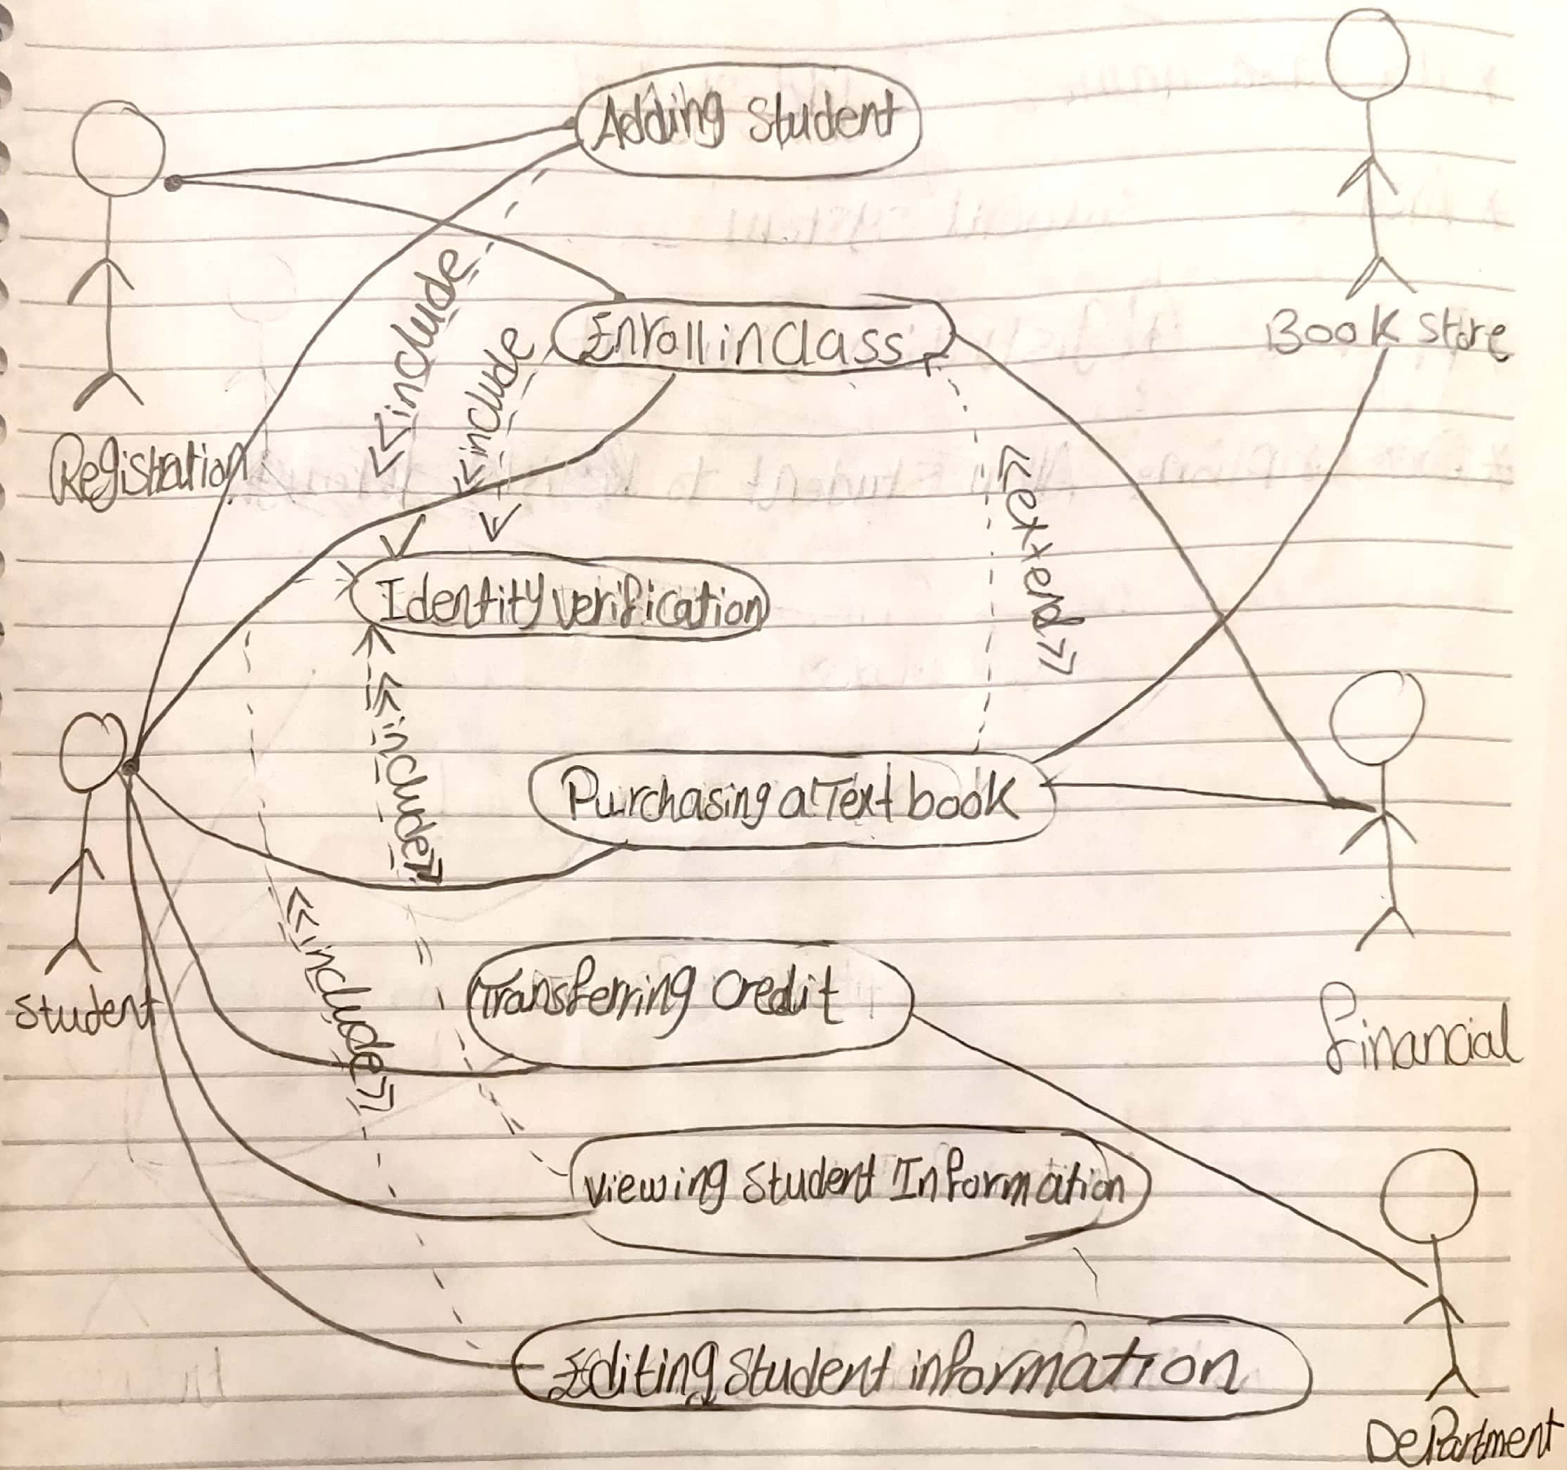 Adding Student
Book Store
Registration
<<include
<<include
Enroll in Class
<<extend>>
Identity verification
<<include>>
Purchasing a Text book
Student
<<include>>
Transferring Credit
Financial
Viewing Student Information
Editing Student information
DePartment